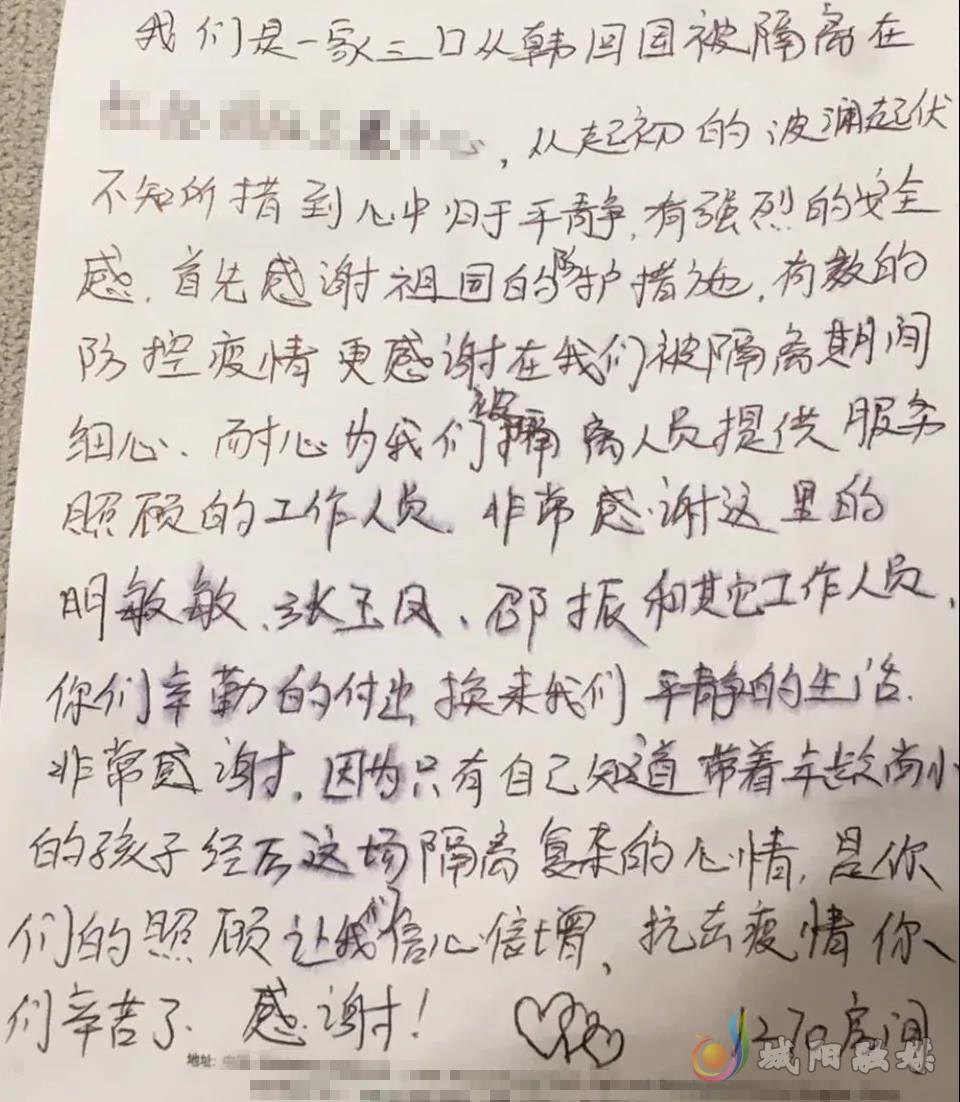 我们是一家三口从韩回国被隔离在
中心，从起初的波澜起伏
不知所措到心中归于平静,有强烈的安全
感.首先感谢祖国的防护措施,有效的
防控疫情更感谢在我们被隔离期间
细心、耐心为我们被隔离人员提供服务
照顾的工作人员.非常感谢这里的
明敏敏、张玉凤、邵振和其它工作人员,
你们辛勤的付出换来我们平静的生活.
非常感谢,因为只有自己知道带着年龄尚小
的孩子经历这场隔离复杂的心情,是你
们的照顾让我们信心信增、抗击疫情你
们辛苦了.感谢!
1270房间
地址:
城阳融媒